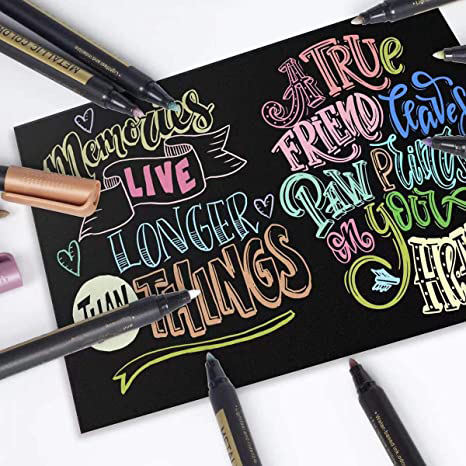 Memories
LIVE
LONGER
THAN
THINGS
A TRUE
FRIEND leaves
PAW PRINTS
on your
METALLIC COLOR